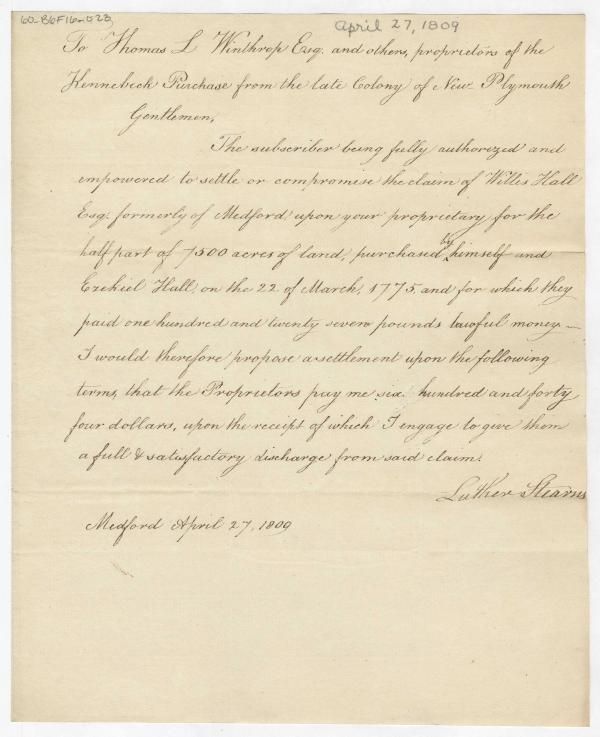 60-86F16-023
April 27, 1809
To Thomas L Winthrop Esq. and others, proprietors of the
Kennebeck Purchase from the late Colony of New Plymouth
Gentlemen,
The subscriber being fully authorezed and
empowered to settle or compromise the claim of Willis Hall
Esq. formerly of Medford upon your proprietary for the
half part of 7500 acres of land, purchased by himself and
Ezekiel Hall, on the 22 of March, 1775, and for which they
paid one hundred and twenty seven pounds lawful money—
I would therefore propose a settlement upon the following
terms, that the Proprietors pay me six hundred and forty
four dollars, upon the receipt of which I engage to give them
a full & satisfactory discharge from said claim.
Luther Stearns
Medford April 27, 1809